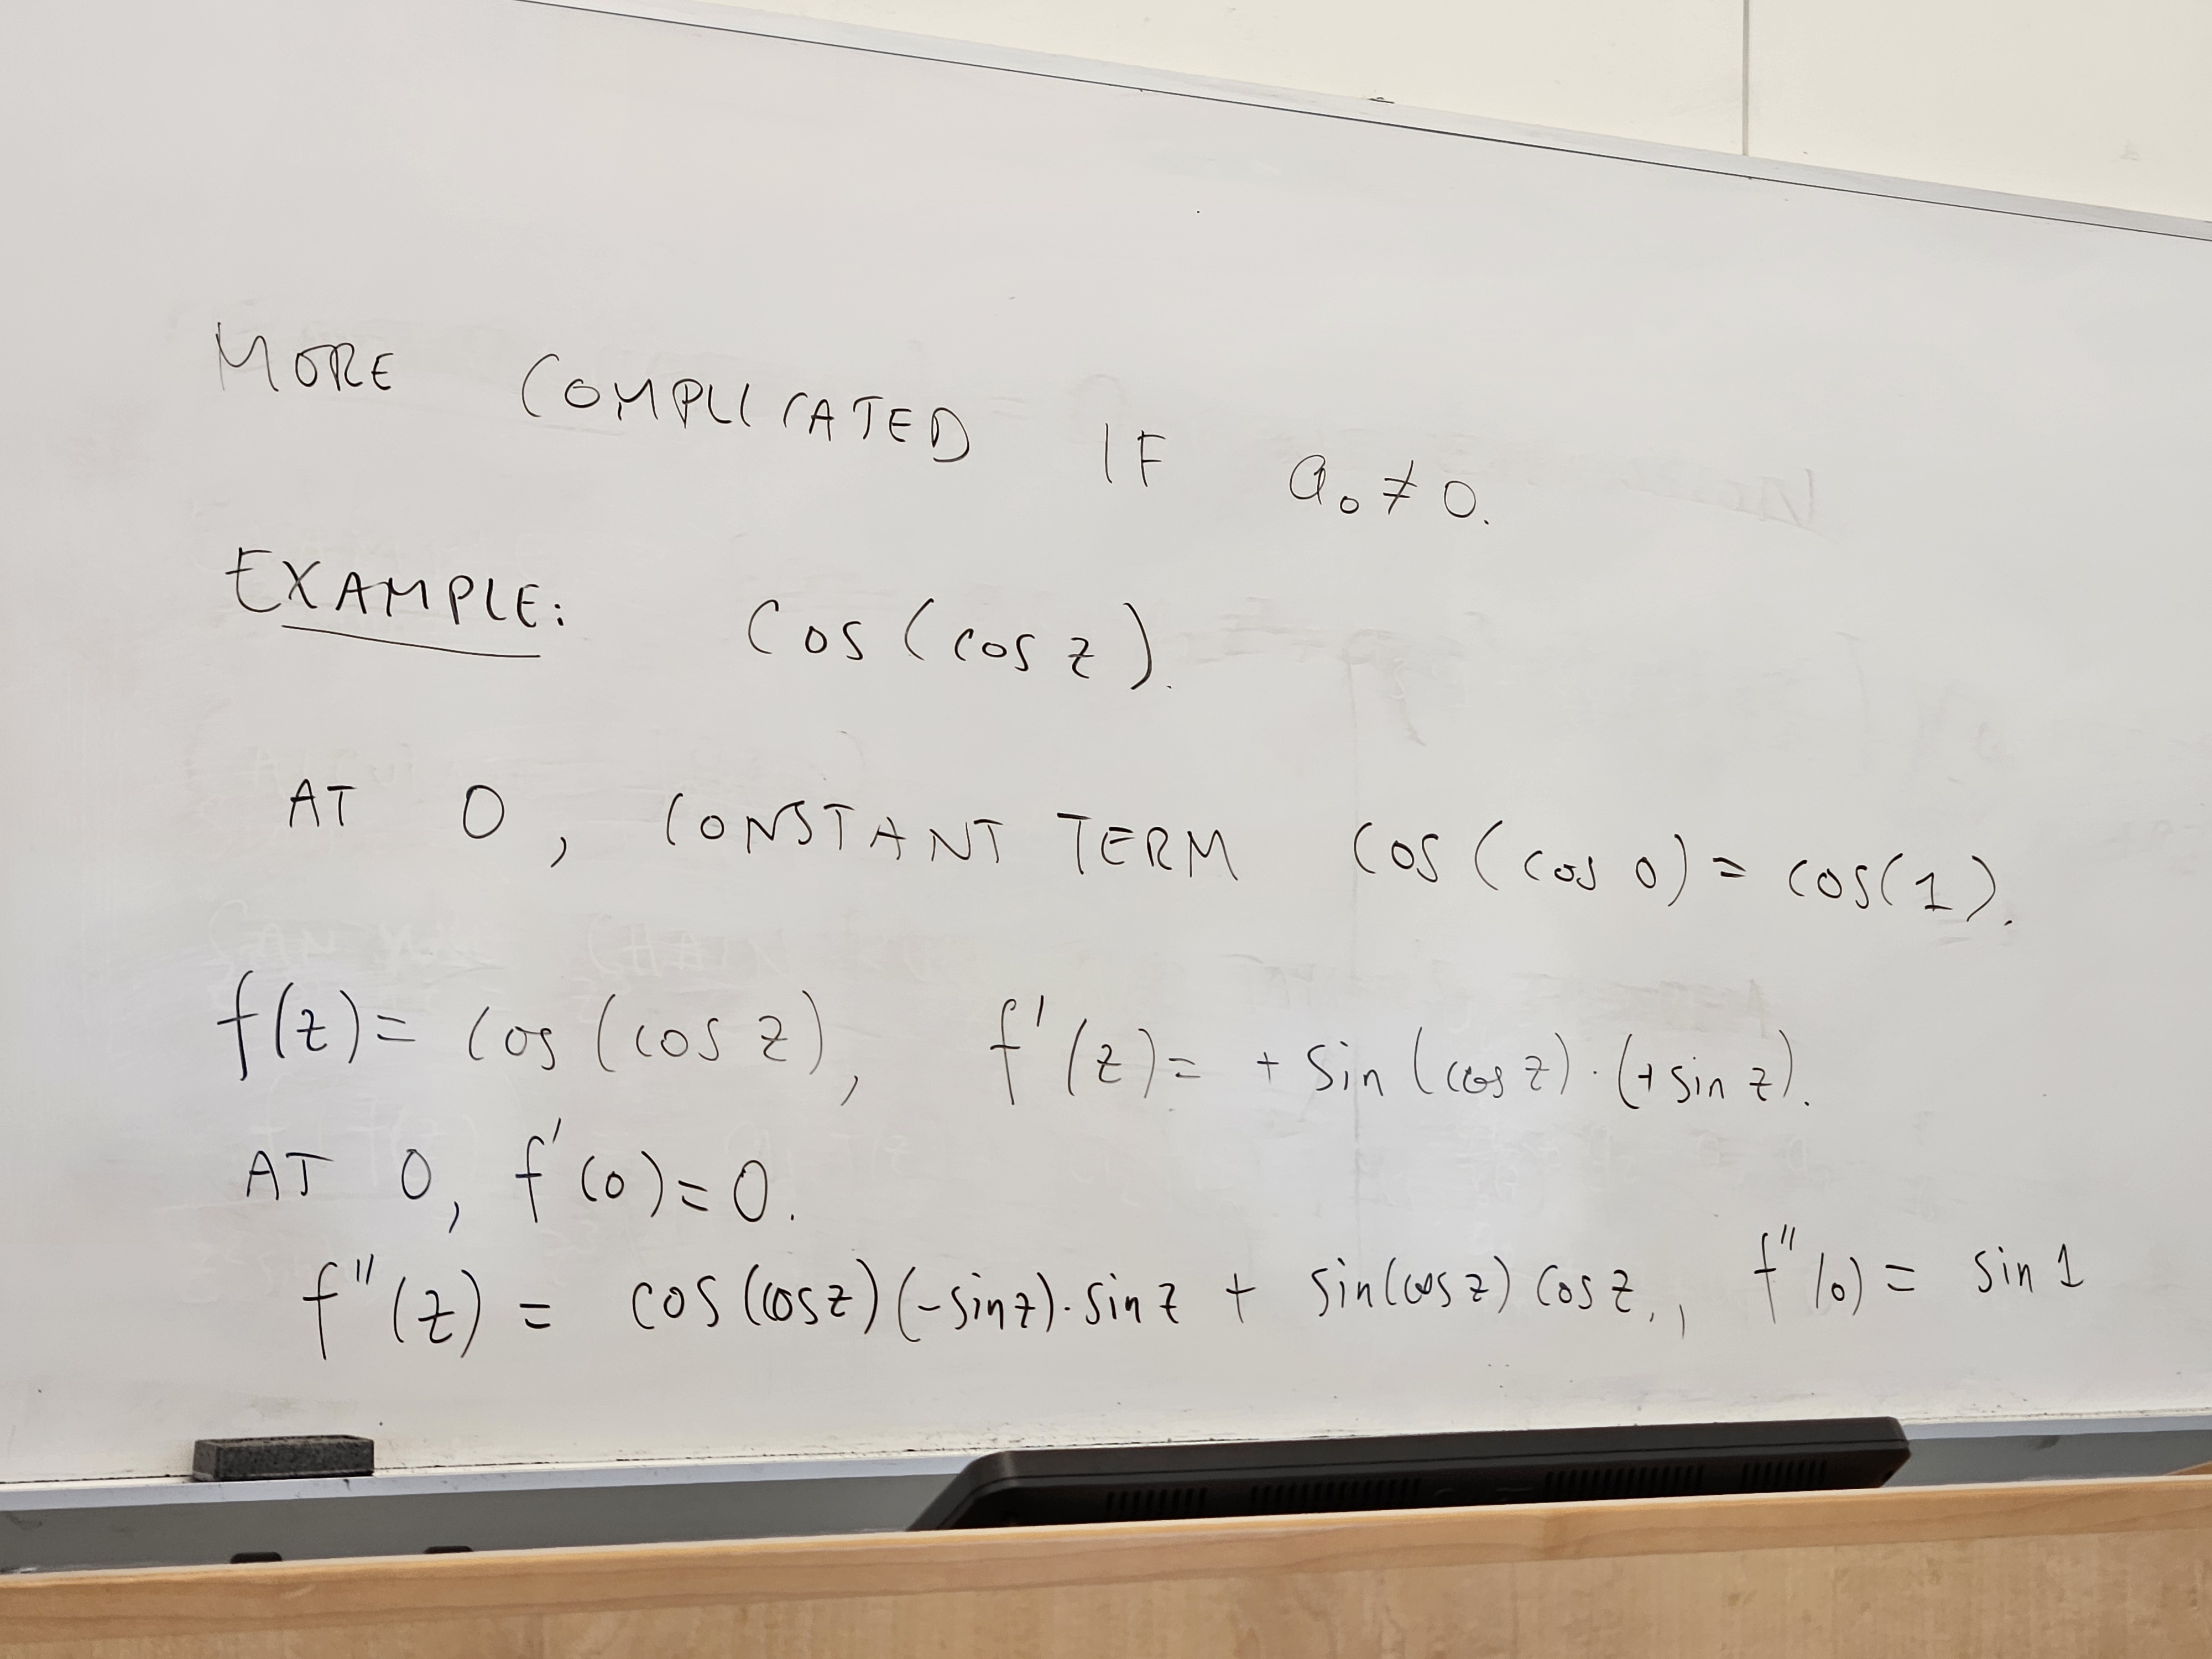 MORE COMPLICATED IF a₀ ≠ 0.
EXAMPLE: cos (cos z).
AT 0, CONSTANT TERM cos (cos 0) = cos(1).
f(z) = cos (cos z), f'(z) = + sin (cos z) · (+ sin z).
AT 0, f'(0) = 0.
f''(z) = cos (cos z) (-sin z) · sin z + sin(cos z) cos z., f''(0) = sin 1